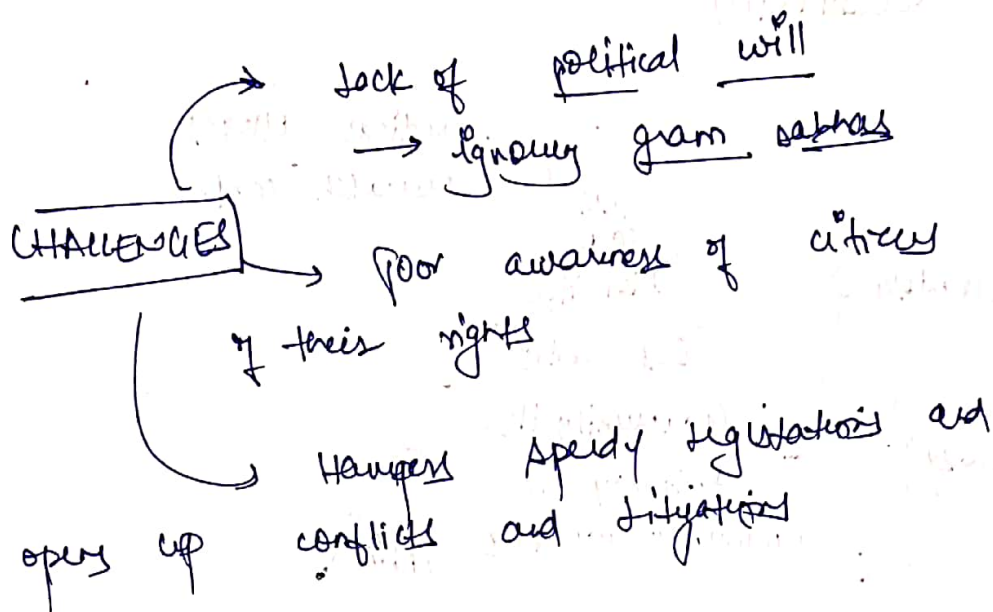 Lack of political will
→ Ignoring gram sabhas
CHALLENGES
Poor awareness of citizens
of their rights
Hampers speedy legislations and
opens up conflicts and litigations